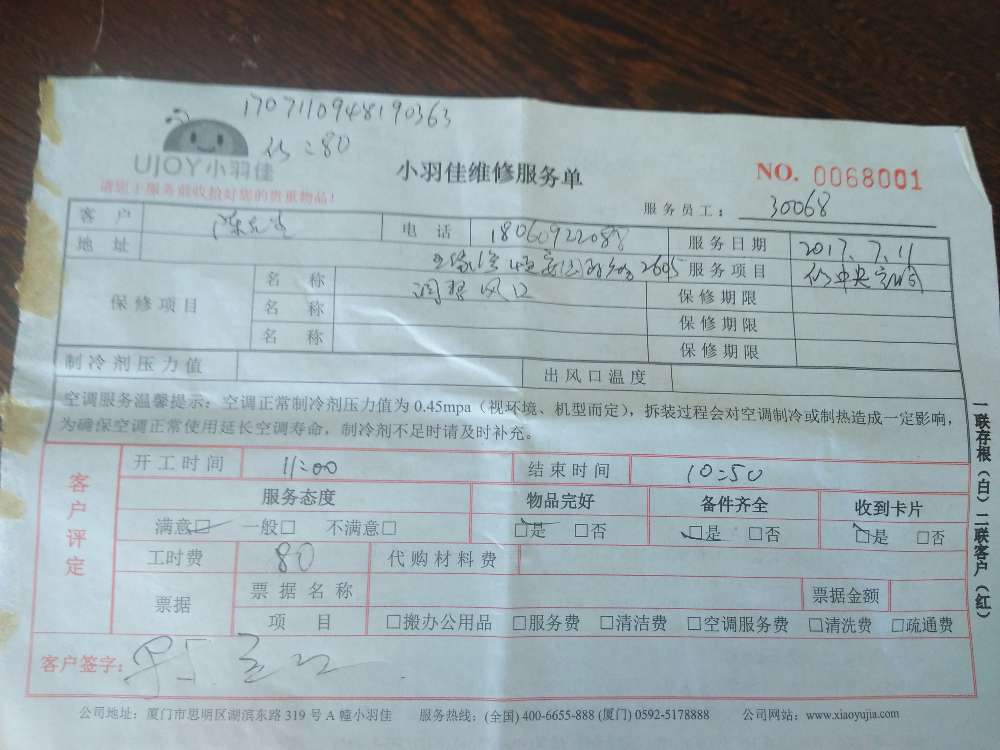 1707110948190363
:80
UJOY小羽佳
小羽佳维修服务单
NO. 0068001
请您于服务前收拾好您的贵重物品!
服务员工: 30068
客户 陈 电话 18060922088 服务日期 2017.7.11
地址 2605 服务项目 中央空调
保修项目 名称 调整风口 保修期限
名称 保修期限
名称 保修期限
制冷剂压力值 出风口温度
空调服务温馨提示:空调正常制冷剂压力值为 0.45mpa(视环境、机型而定),拆装过程会对空调制冷或制热造成一定影响,
为确保空调正常使用延长空调寿命,制冷剂不足时请及时补充。
客户评定
开工时间 11:00 结束时间 10:50
服务态度 物品完好 备件齐全 收到卡片
满意☑ 一般□ 不满意□ ☑是 □否 ☑是 □否 ☑是 □否
工时费 80 代购材料费
票据 票据名称 票据金额
项目 □搬办公用品 □服务费 □清洁费 □空调服务费 □清洗费 □疏通费
客户签字:
一联存根(白)二联客户(红)
公司地址:厦门市思明区湖滨东路 319 号 A 幢小羽佳 服务热线:(全国) 400-6655-888 (厦门) 0592-5178888 公司网站:www.xiaoyujia.com